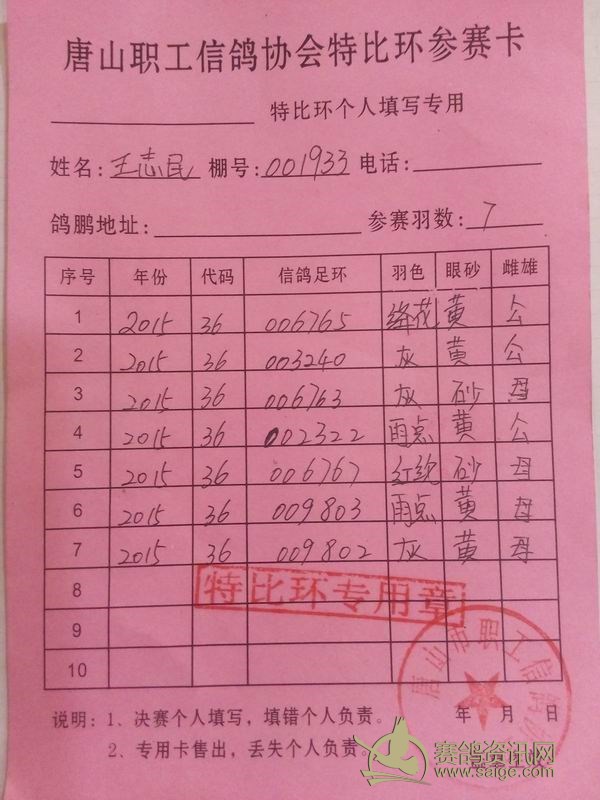 唐山职工信鸽协会特比环参赛卡
特比环个人填写专用
姓名: 王志民 棚号: 001933 电话:
鸽鹏地址: 参赛羽数: 7
序号 年份 代码 信鸽足环 羽色 眼砂 雌雄
1 2015 36 006765 绛花 黄 公
2 2015 36 003240 灰 黄 公
3 2015 36 006763 灰 砂 母
4 2015 36 002322 雨点 黄 公
5 2015 36 006767 红纹 砂 母
6 2015 36 009803 雨点 黄 母
7 2015 36 009802 灰 黄 母
8
特比环专用章
9
10
唐山市职工信鸽协
说明: 1、决赛个人填写，填错个人负责。 年 月 日
2、专用卡售出，丢失个人负责。
赛鸽资讯网
www.saige.com